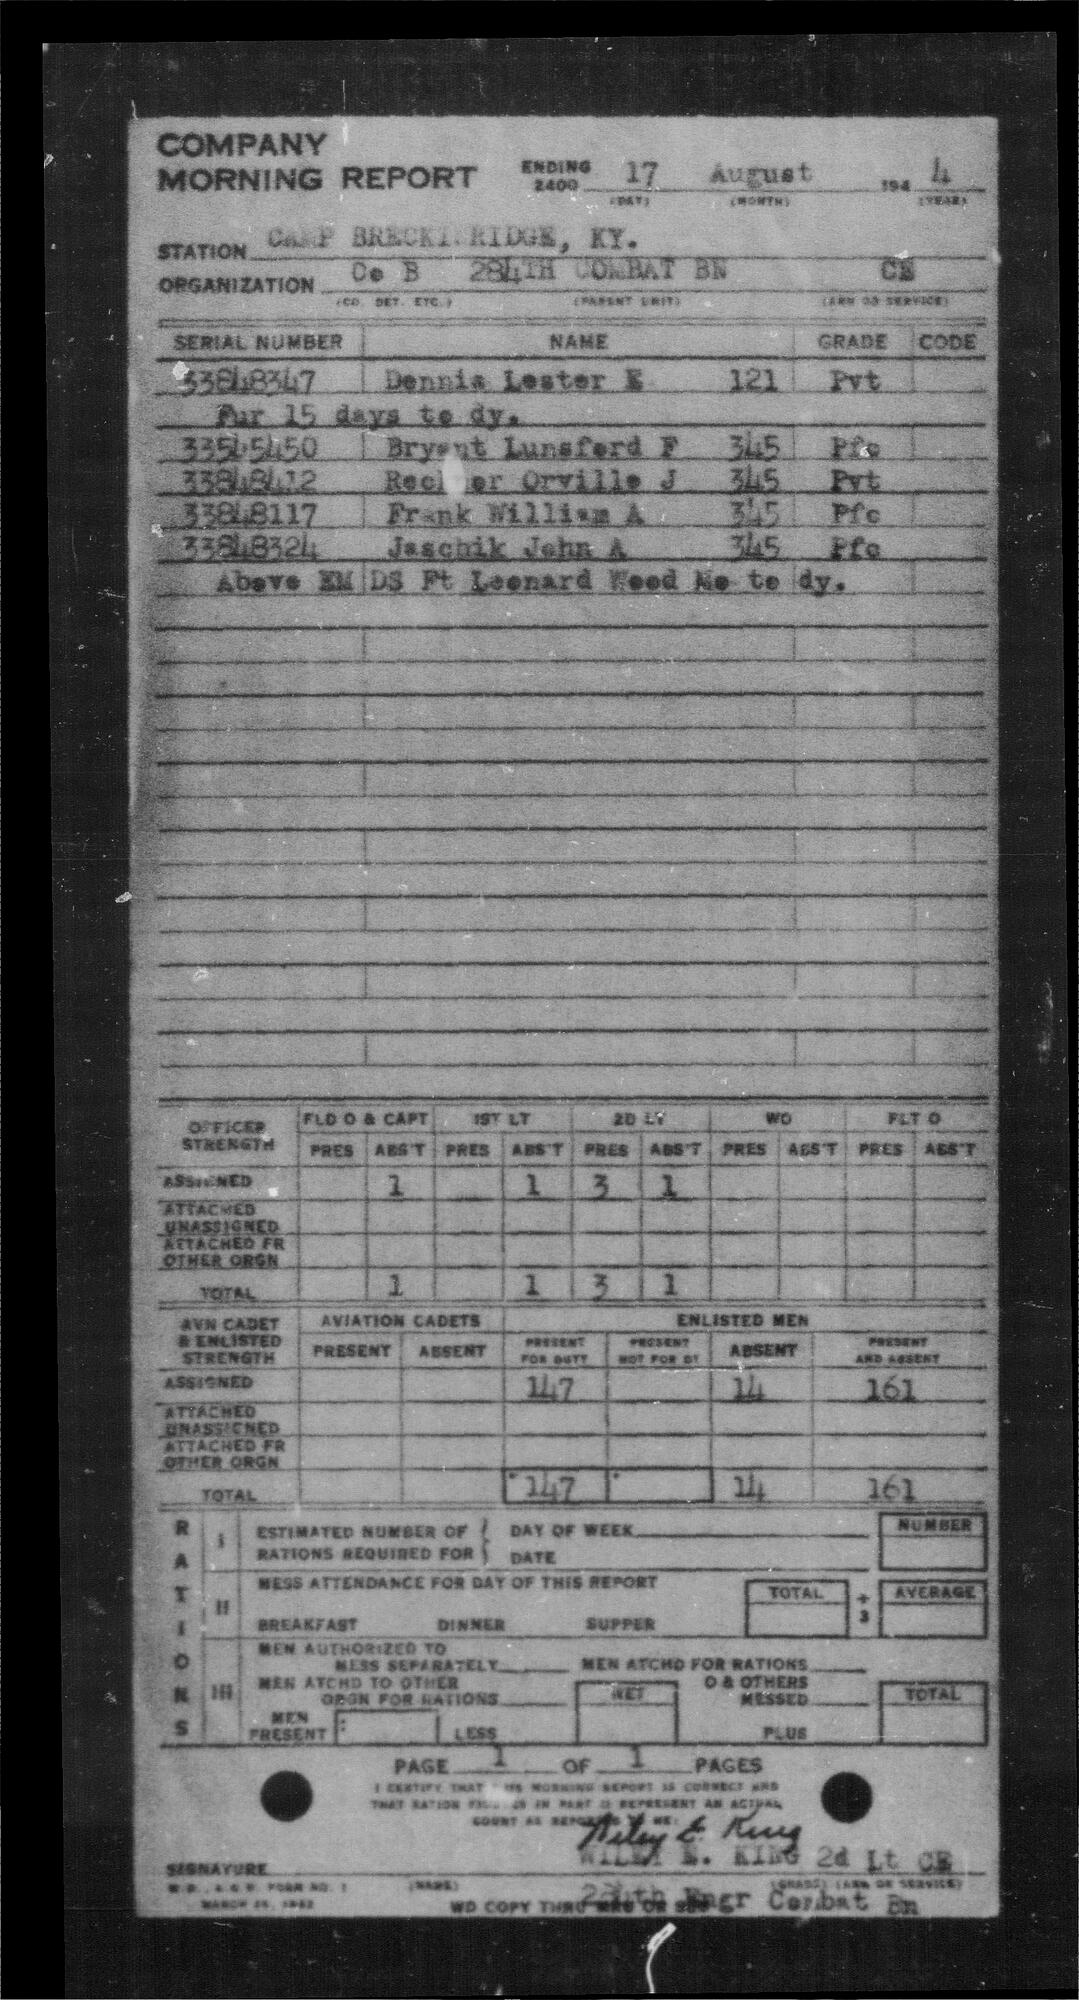 COMPANY
MORNING REPORT ENDING 2400 17 August 194 4
(DAY) (MONTH) (YEAR)
STATION CAMP BRECKINRIDGE, KY.
ORGANIZATION Co B 284TH COMBAT BN CE
(CO. DET. ETC.) (PARENT UNIT) (ARM OR SERVICE)
SERIAL NUMBER NAME GRADE CODE
33848347 Dennis Lester E 121 Pvt
Fur 15 days to dy.
33545450 Bryant Lunsford F 345 Pfc
33848412 Orville J 345 Pvt
33848117 Frank William A 345 Pfc
33848324 Jaschik John A 345 Pfc
Above EM DS Ft Leonard Wood Mo to dy.
OFFICER STRENGTH FLD O & CAPT 1ST LT 2D LT WO FLT O
PRES ABS'T PRES ABS'T PRES ABS'T PRES ABS'T PRES ABS'T
ASSIGNED 1 1 3 1
ATTACHED UNASSIGNED
ATTACHED FR OTHER ORGN
TOTAL 1 1 3 1
AVN CADET & ENLISTED STRENGTH AVIATION CADETS ENLISTED MEN
PRESENT ABSENT PRESENT FOR DUTY PRESENT NOT FOR DY ABSENT PRESENT AND ABSENT
ASSIGNED 147 14 161
ATTACHED UNASSIGNED
ATTACHED FR OTHER ORGN
TOTAL 147 14 161
RATIONS
I ESTIMATED NUMBER OF RATIONS REQUIRED FOR DAY OF WEEK DATE NUMBER
II MESS ATTENDANCE FOR DAY OF THIS REPORT TOTAL ÷ 3 AVERAGE
BREAKFAST DINNER SUPPER
III MEN AUTHORIZED TO MESS SEPARATELY MEN ATCHD FOR RATIONS
MEN ATCHD TO OTHER ORGN FOR RATIONS NET O & OTHERS MESSED TOTAL
MEN PRESENT LESS PLUS
PAGE 1 OF 1 PAGES
I CERTIFY THAT THIS MORNING REPORT IS CORRECT AND
THAT RATION FIGURES IN PART III REPRESENT AN ACTUAL
COUNT AS REPORTED TO ME:
Wiley E. King
WILEY E. KING 2d Lt CE
SIGNATURE
W. D., A. G. O. FORM NO. 1 (NAME) (GRADE) (ARM OR SERVICE)
MARCH 25, 1942 WD COPY THRU MRU OR 284th Engr Combat Bn